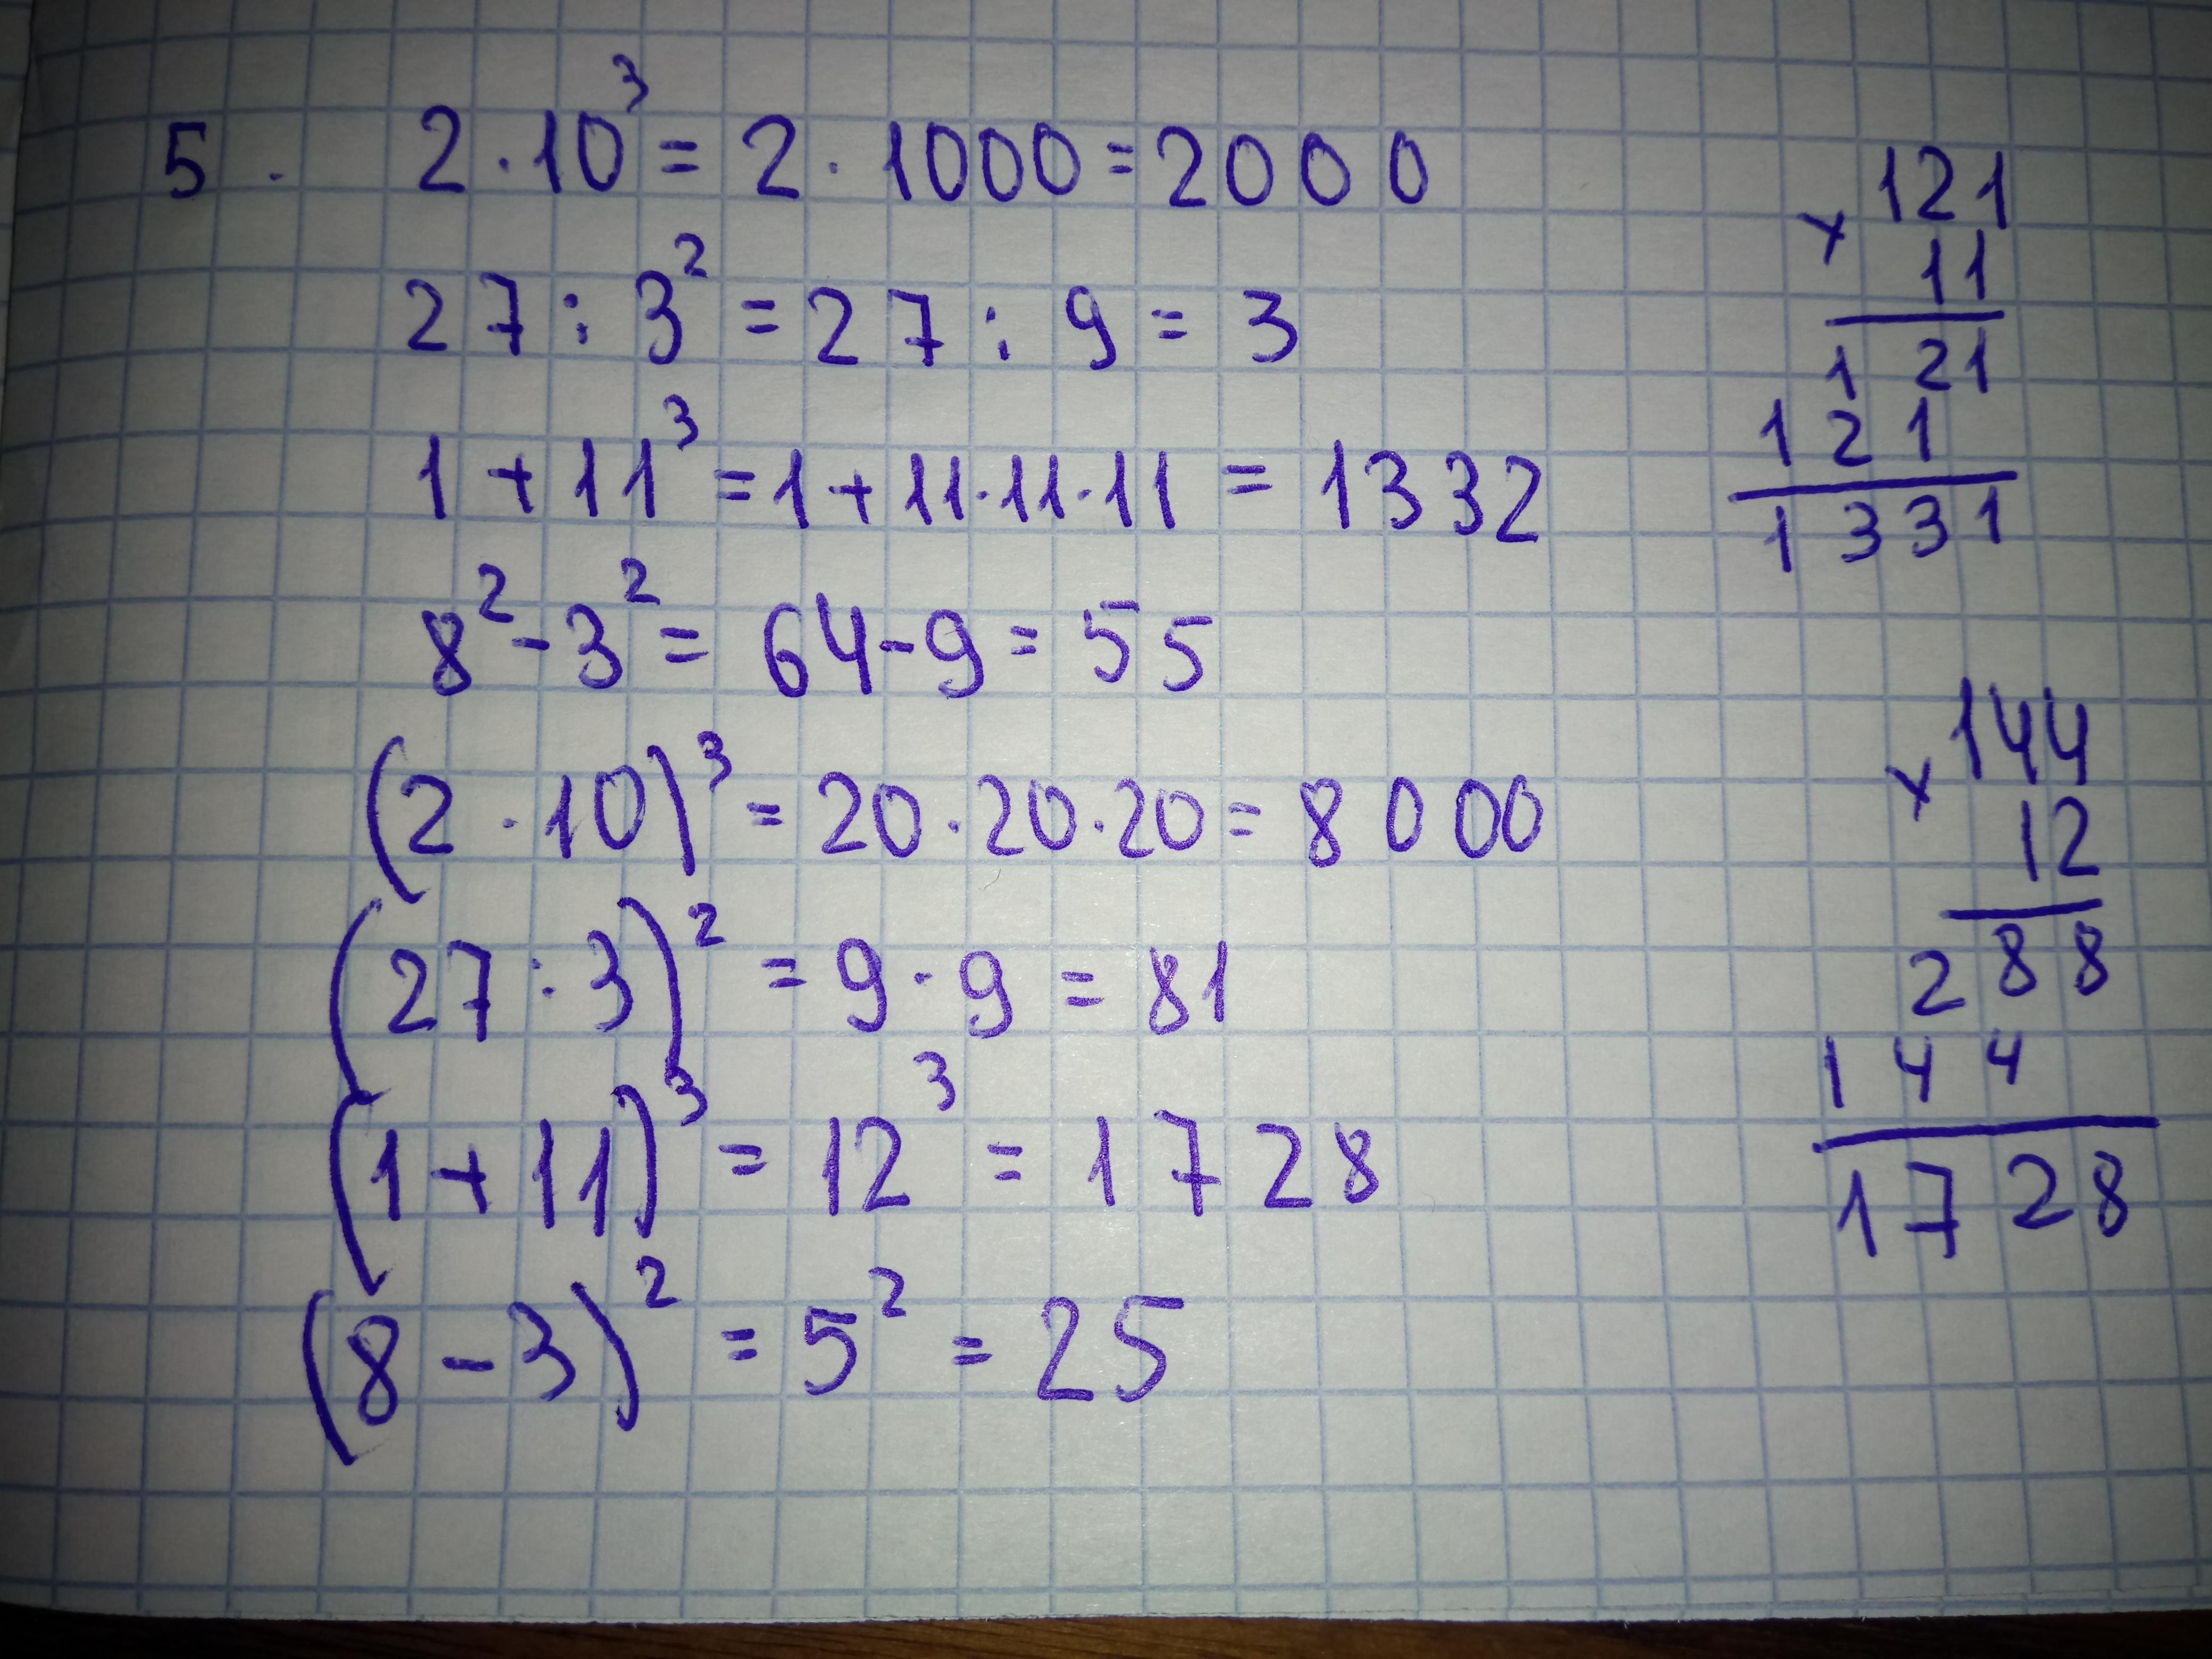 5. 2·10³ = 2·1000 = 2000
27 : 3² = 27 : 9 = 3
1 + 11³ = 1 + 11·11·11 = 1332
8² - 3² = 64 - 9 = 55
(2·10)³ = 20·20·20 = 8000
(27 : 3)² = 9·9 = 81
(1 + 11)³ = 12³ = 1728
(8 - 3)² = 5² = 25
× 121
11
121
121
1331
× 144
12
288
144
1728